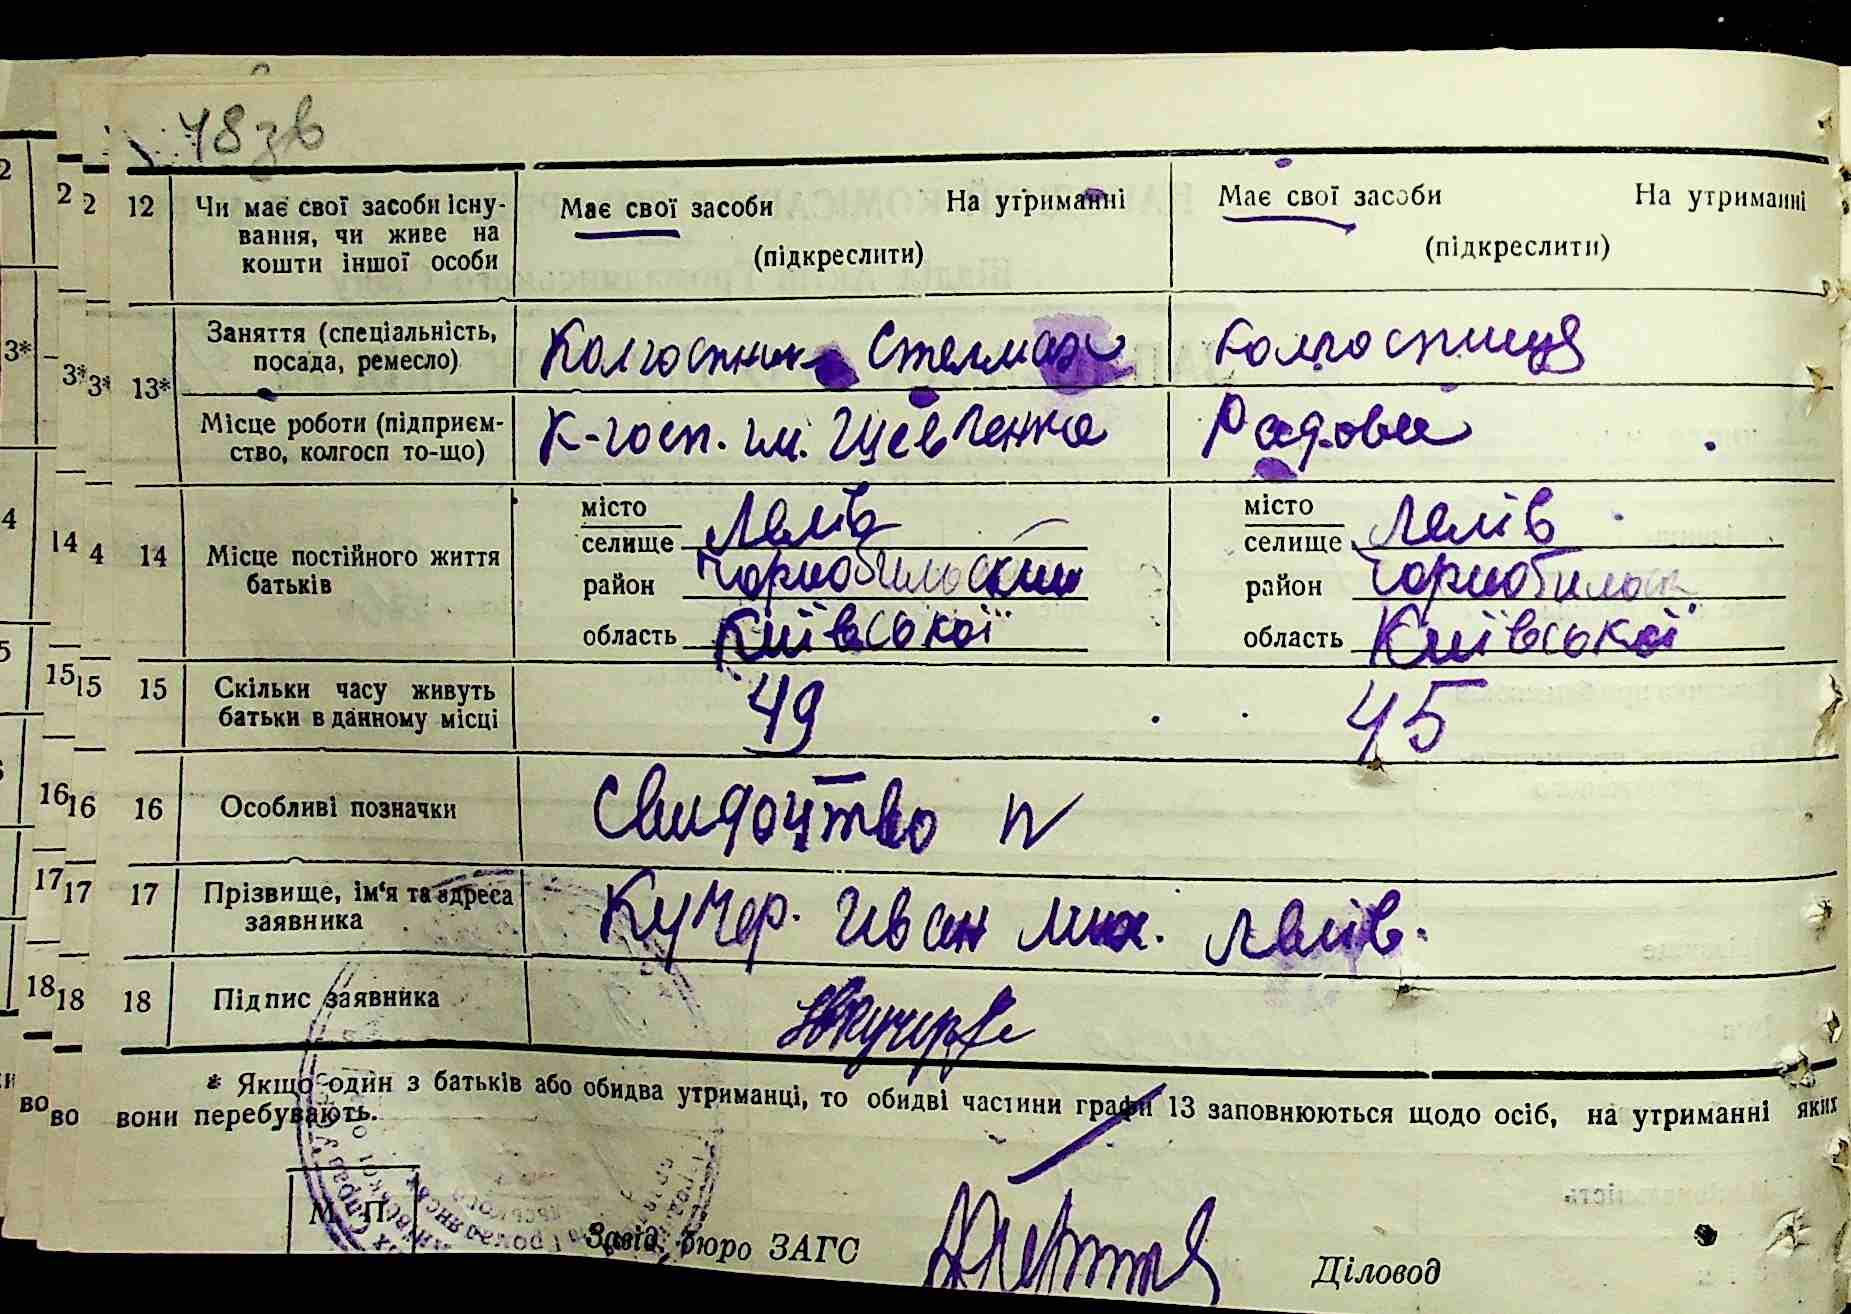 48зв
12 Чи має свої засоби існу- Має свої засоби На утриманні Має свої засоби На утриманні
вання, чи живе на (підкреслити) (підкреслити)
кошти іншої особи
Заняття (спеціальність, Колгоспник Стельмах колгоспниця
посада, ремесло)
13*
Місце роботи (підприєм- К-госп. ім. Шевченка Рядова
ство, колгосп то-що)
місто Лелів місто Лелів
селище селище
14 Місце постійного життя район Чорнобильский район Чорнобильск
батьків
область Київської область Київської
15 Скільки часу живуть 49 45
батьки в данному місці
16 Особливі позначки Свидоцтво N
17 Прізвище, ім'я та адреса Кучер. Иван Мих. Лелів.
заявника
18 Підпис заявника
* Якщо один з батьків або обидва утриманці, то обидві частини графи 13 заповнюються щодо осіб, на утриманні яких
вони перебувають.
М П
Завід. бюро ЗАГС Діловод